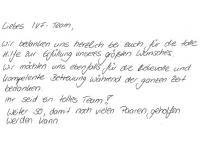 Liebes IVF-Team,
wir bedanken uns herzlich bei euch, für die tolle
Hilfe zur Erfüllung unseres größten Wunsches.
Wir möchten uns ebenfalls für die liebevolle und
kompetente Betreuung während der ganzen Zeit
bedanken.
Ihr seid ein tolles Team!
Weiter so, damit noch vielen Paaren, geholfen
werden kann.